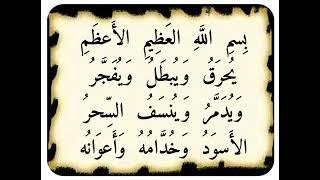 بِسمِ اللَّهِ العَظِيمِ الأَعظَمِ
يُحرَقُ وَيُبطَلُ وَيُفَجَّرُ
وَيُدَمَّرُ وَيُنسَفُ السِّحرُ
الأَسوَدُ وَخُدَّامُهُ وَأَعوَانُه